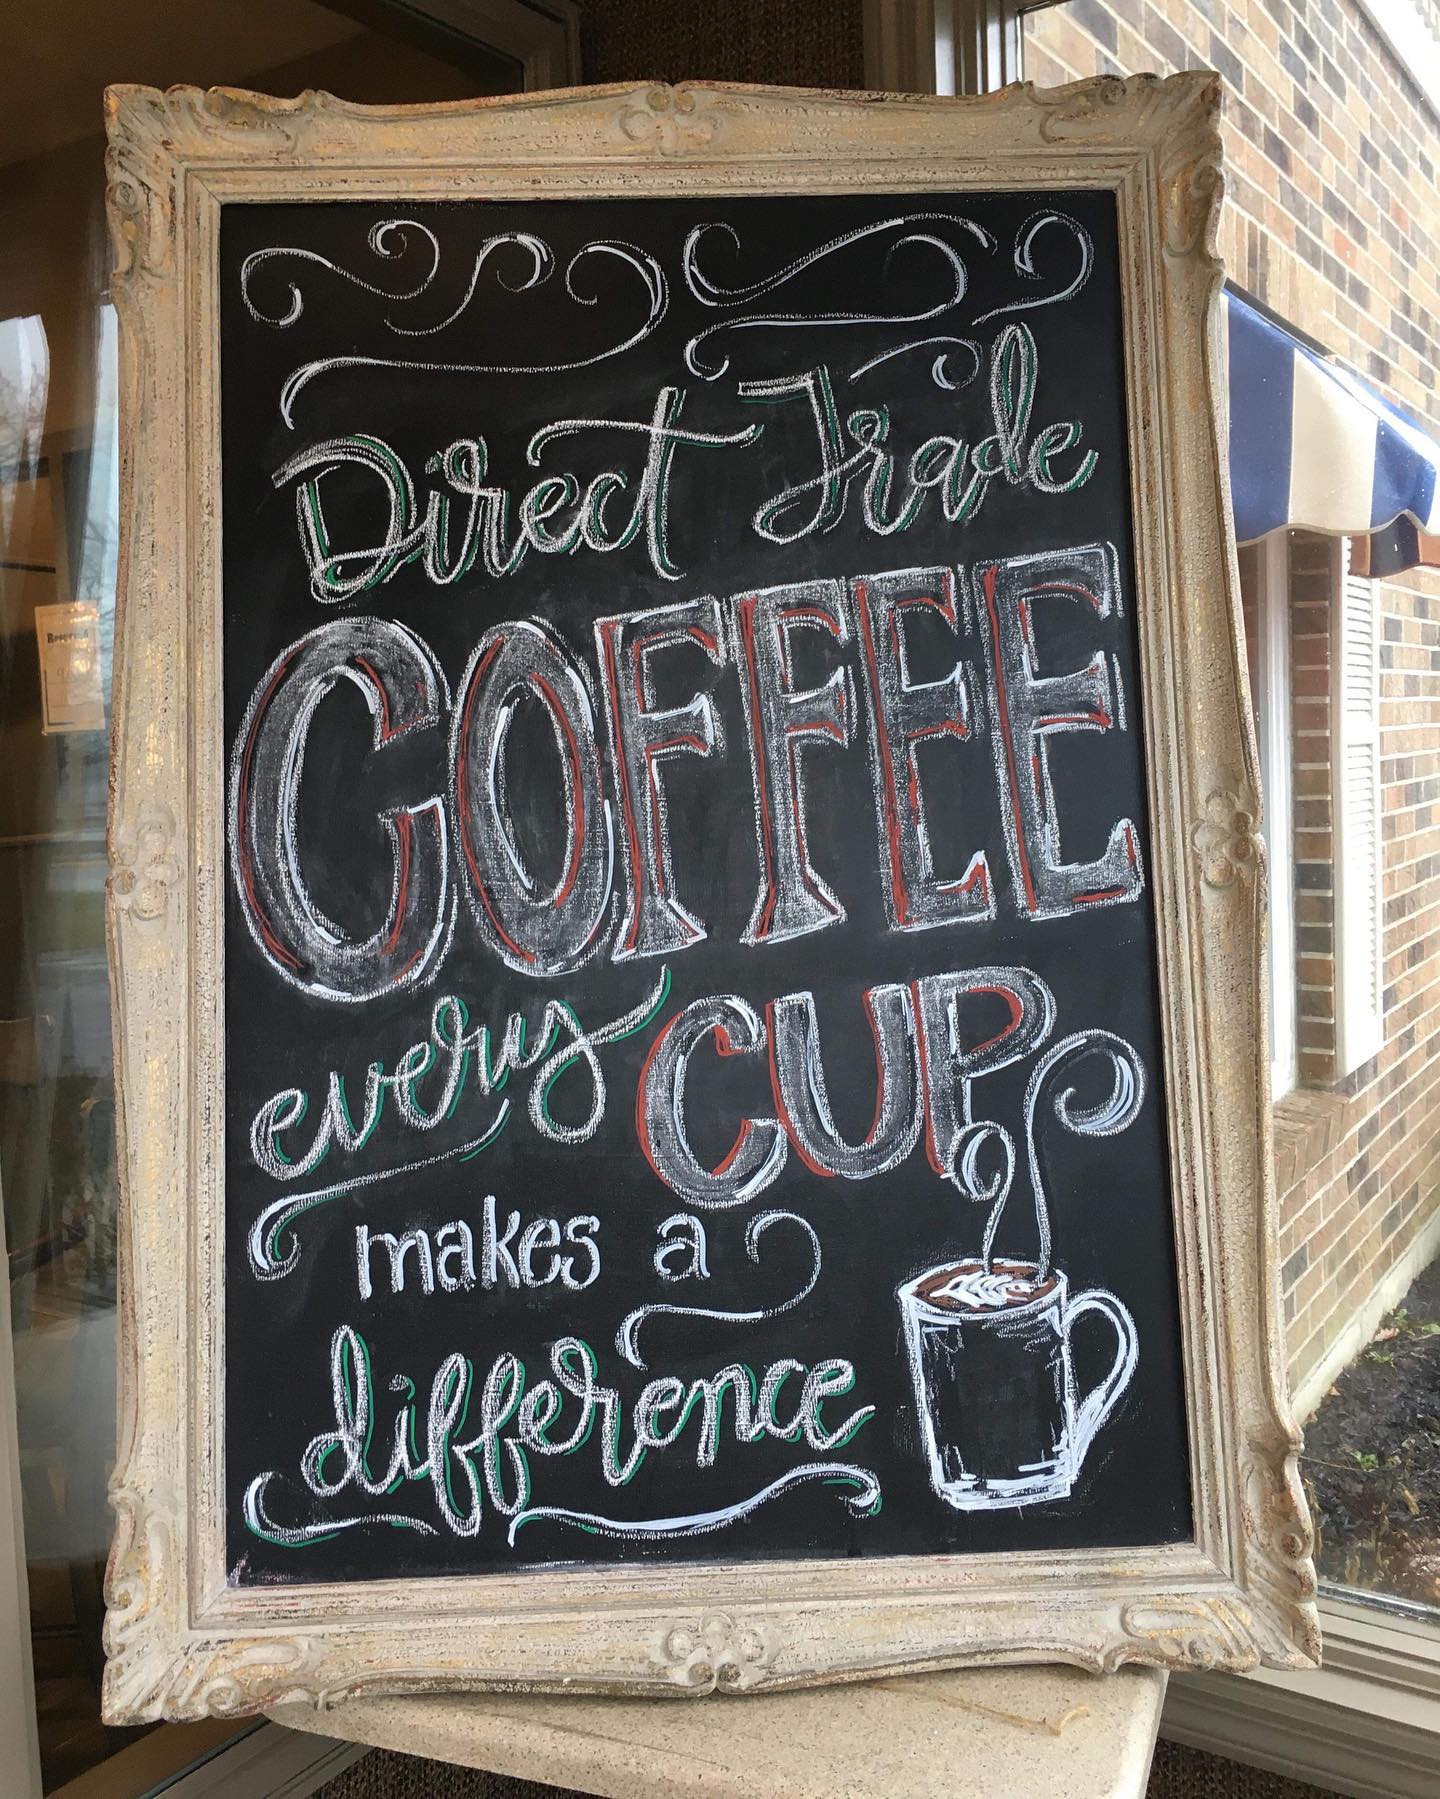 Direct Trade
COFFEE
every CUP
makes a
difference
Reserved